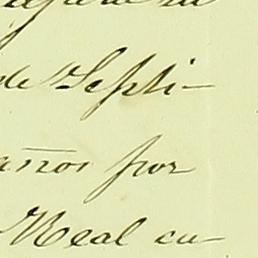 de Septi-
años por
Real cu-